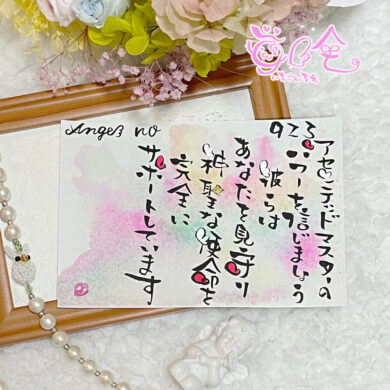 Angel no
923
アセンデッドマスターの
パワーを信じましょう
彼らは
あなたを見守り
神聖な使命を
完全に
サポートしています